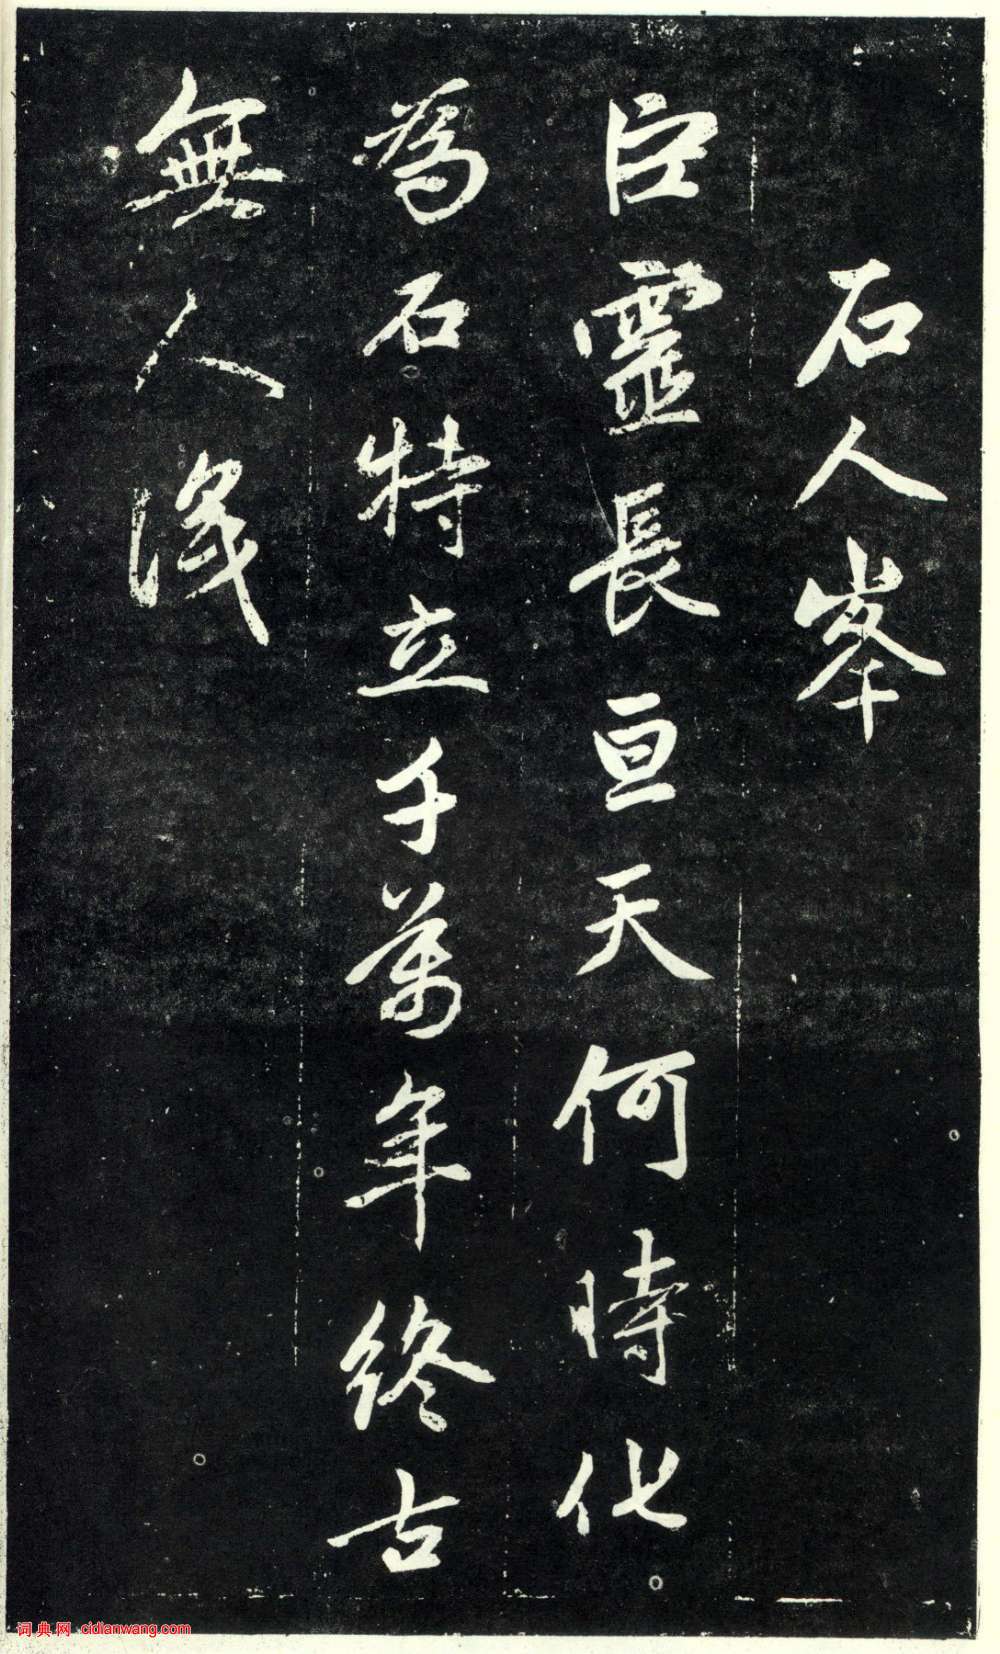 石人峯
巨靈長亘天何時化
為石特立千萬年終古
無人識
词典网 cidianwang.com